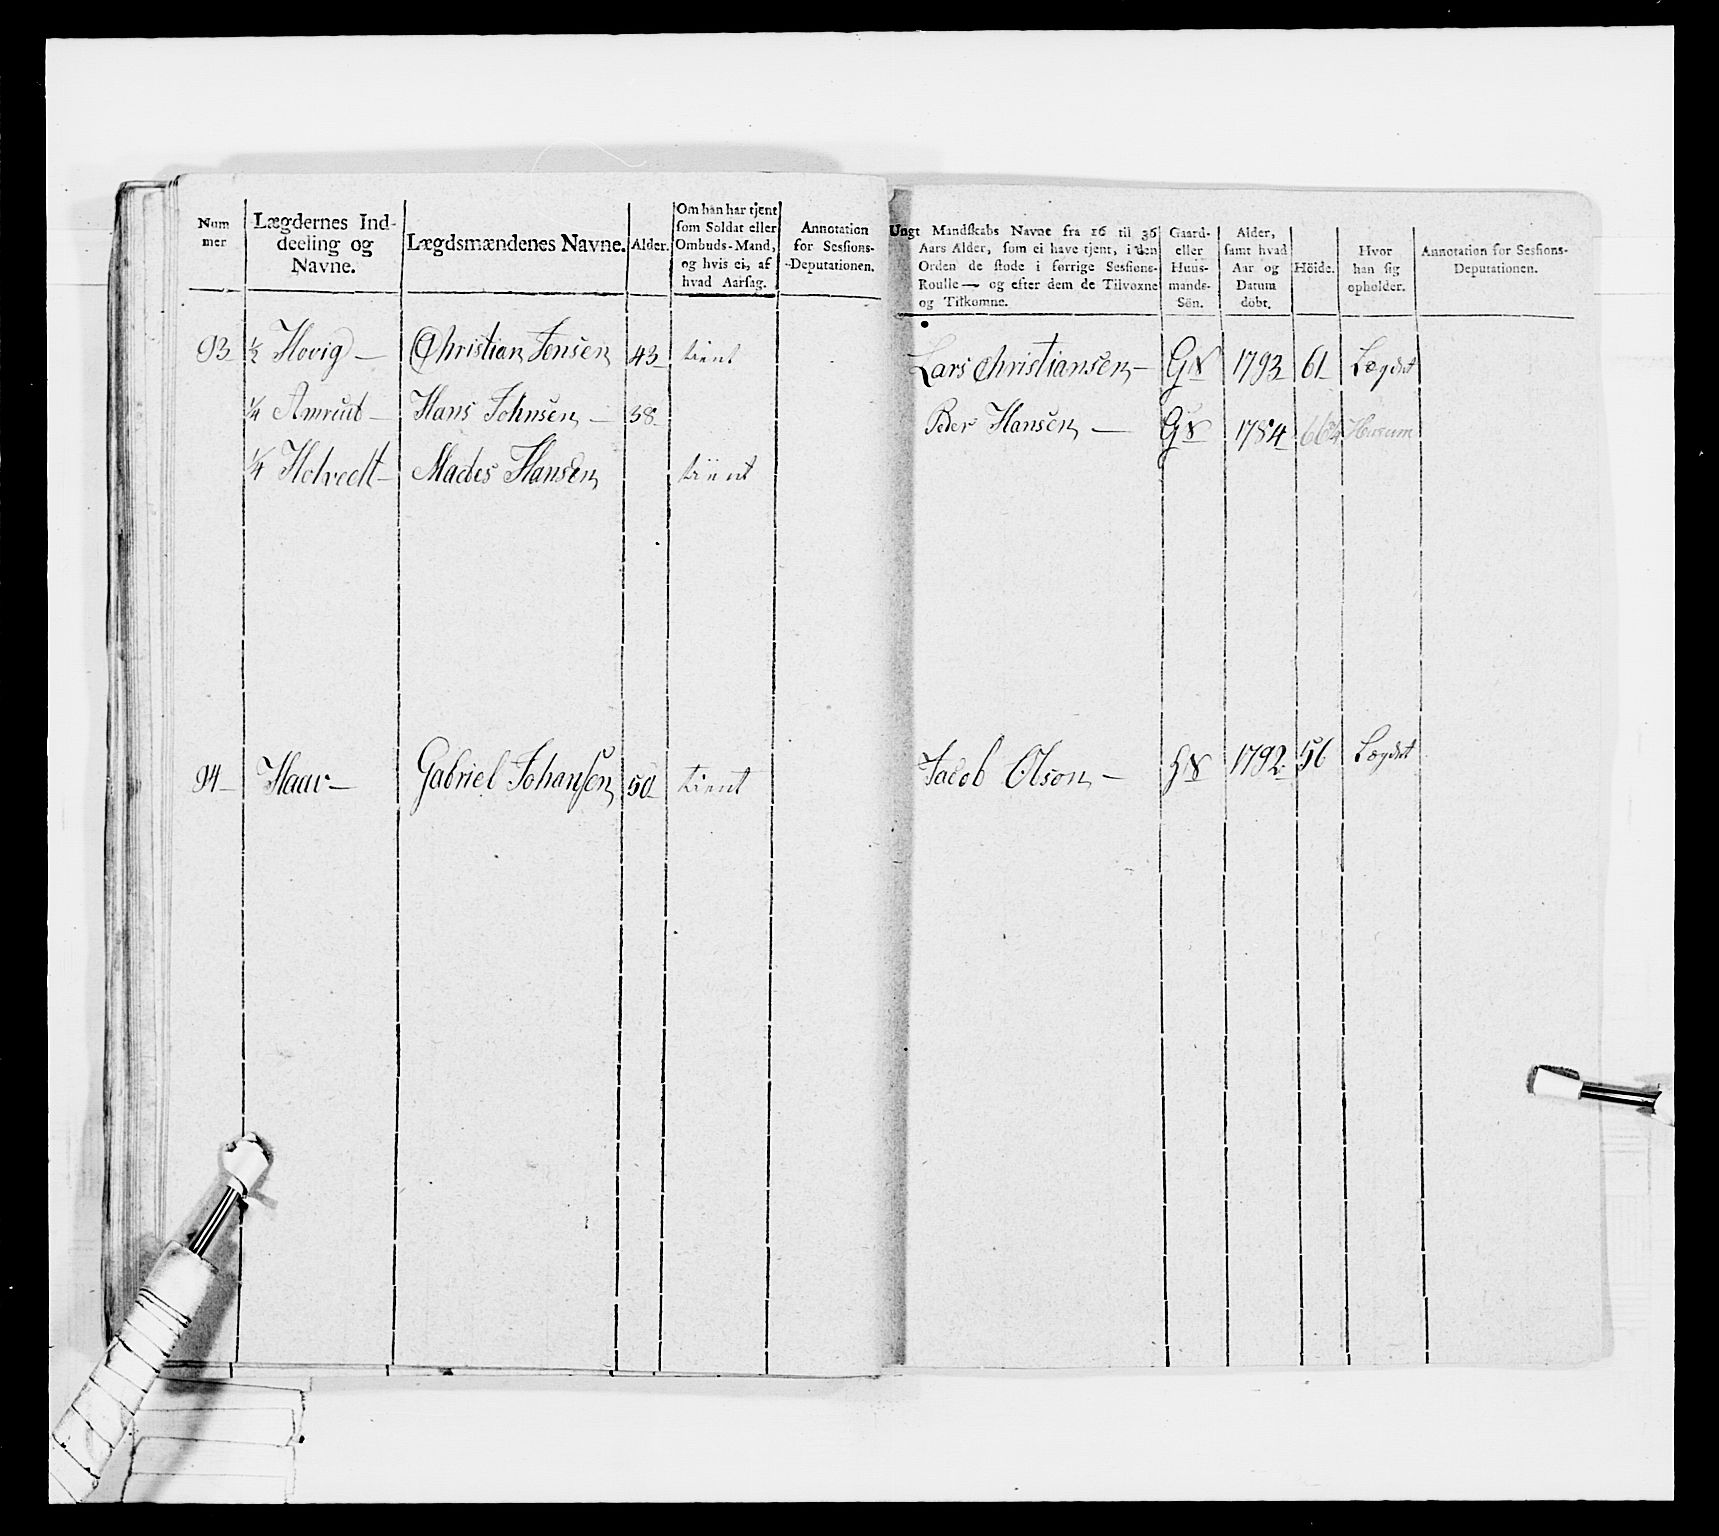 Num
mer
Lægdernes Ind-
deeling og
Navne.
Lægdsmændenes Navne.
Alder.
Om han har tjent
som Soldat eller
Ombuds-Mand,
og hvis ei, af
hvad Aarsag.
Annotation
for Sessions-
-Deputationen.
Ungt Mandskabs Navne fra 16 til 36
Aars Alder, som ei have tjent, i den
Orden de stode i forrige Sessions-
Roulle — og efter dem de Tilvoxne
og Tilkomne.
Gaard-
eller
Huus-
mands-
Sön.
Alder,
samt hvad
Aar og
Datum
dobt.
Höide.
Hvor
han sig
opholder.
Annotation for Sessions-
Deputationen.
93 ½ Hovig — Christian Jensen 43 tient Lars Christiansen — G 1793 61 Lægdet
¼ — Hans Johnsen — 38 Peder Hansen — G 1784 Husum
¼ Holvedt — Mades Hansen tient
94 — Haav — Gabriel Johansen 50 tient Jacob Olson — 1792 56 Lægdet